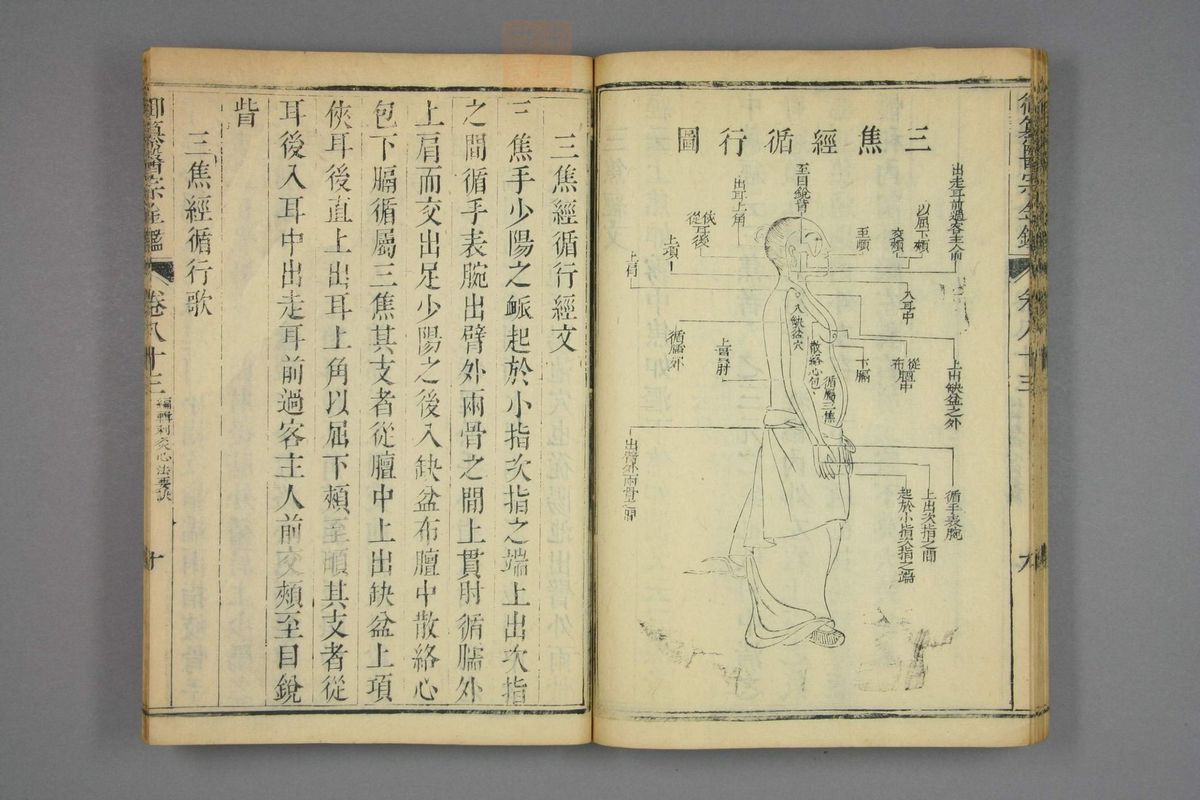 三焦經循行圖
出走耳前過客主人前
以屈下頰
交頰
至䪼
至目銳眥
出耳上角
俠耳後
從
上項
上肩
入耳中
入缺盆穴
上出缺盆之外
從膻中
布膻中
下膈
散絡心包
循屬三焦
上貫肘
循臑外
出臂外兩骨之間
循手表腕
上出次指之間
起於小指次指之端
三焦經循行經文
三焦手少陽之脈起於小指次指之端上出次指
之間循手表腕出臂外兩骨之間上貫肘循臑外
上肩而交出足少陽之後入缺盆布膻中散絡心
包下膈循屬三焦其支者從膻中上出缺盆上項
俠耳後直上出耳上角以屈下頰至䪼其支者從
耳後入耳中出走耳前過客主人前交頰至目銳
眥
三焦經循行歌
御纂醫宗金鑑
卷八十三
編輯刺灸心法要訣
十